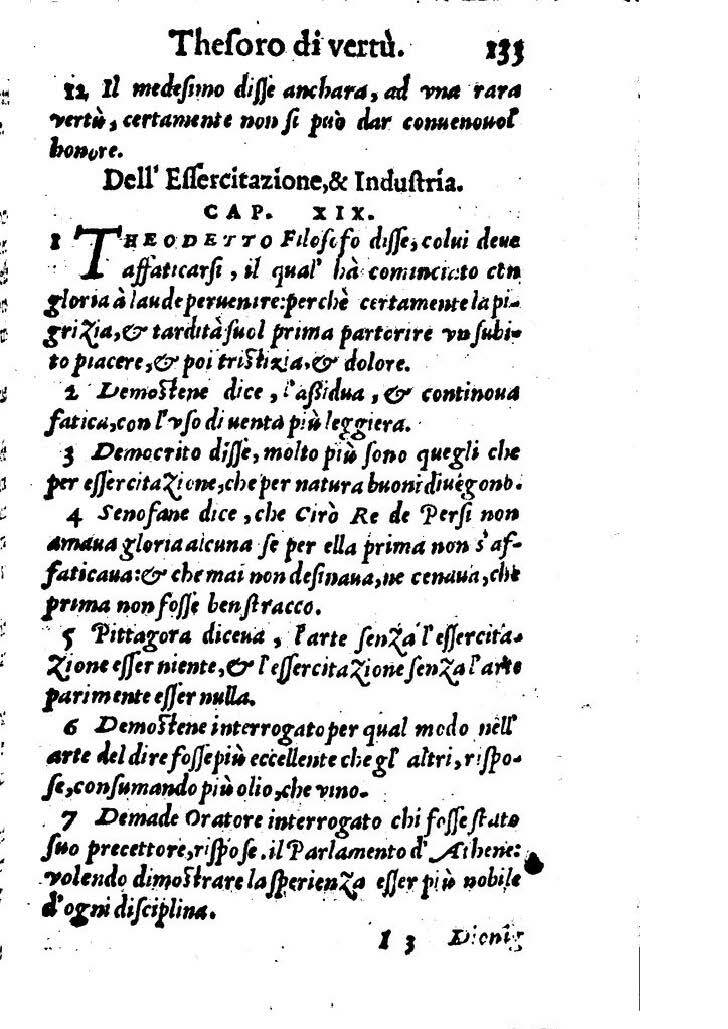 Theſoro di vertù. 133
12 Il medeſimo diſſe anchara, ad vna rara
vertù, certamente non ſi può dar conuenouol
honore.
Dell' Eſſercitazione, & Induſtria.
CAP. XIX.
1 THEODETTO Filoſofo diſſe, colui deue
affaticarſi, il qual' hà cominciato con
gloria à laude peruenire: perchè certamente la pi-
grizia, & tardità ſuol prima partorire vn ſubi-
to piacere, & poi triſtizia, & dolore.
2 Demoſtene dice, l'aſsidua, & continoua
fatica, con l'vſo diuenta più leggiera.
3 Democrito diſſe, molto più ſono quegli che
per eſſercitazione, che per natura buoni diuēgono.
4 Senofane dice, che Cirò Re de Perſi non
amaua gloria alcuna ſe per ella prima non s'af-
faticaua: & che mai non deſinaua, ne cenaua, che
prima non foſſe ben ſtracco.
5 Pittagora diceua, l'arte ſenza l'eſſercita-
zione eſſer niente, & l'eſſercitazione ſenza l'arte
parimente eſſer nulla.
6 Demoſtene interrogato per qual modo nell'
arte del dire foſſe più eccellente che gl' altri, riſpo-
ſe, conſumando più olio, che vino.
7 Demade Oratore interrogato chi foſſe ſtato
ſuo precettore, riſpoſe. il Parlamento d' Athene:
volendo dimoſtrare la ſperienza eſſer più nobile
d'ogni diſciplina.
I 3 Dionig